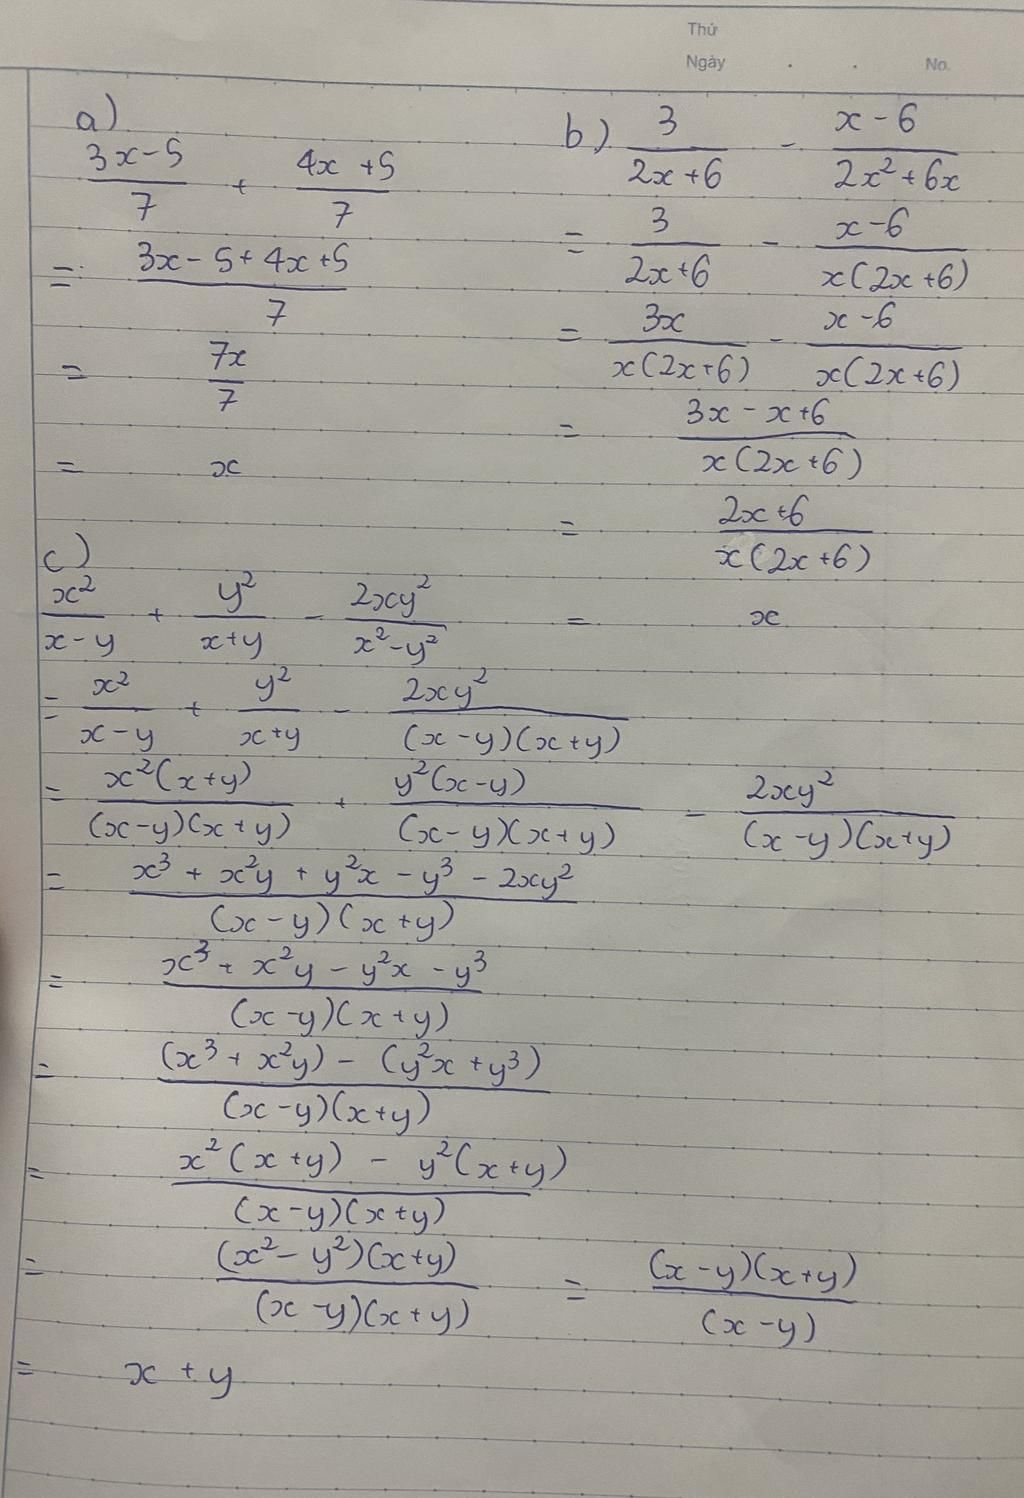 Thứ
Ngày . . No.
a)
\frac{3x-5}{7} + \frac{4x+5}{7}
= \frac{3x-5+4x+5}{7}
= \frac{7x}{7}
= x
b) \frac{3}{2x+6} - \frac{x-6}{2x^2+6x}
= \frac{3}{2x+6} - \frac{x-6}{x(2x+6)}
= \frac{3x}{x(2x+6)} - \frac{x-6}{x(2x+6)}
= \frac{3x-x+6}{x(2x+6)}
= \frac{2x+6}{x(2x+6)}
= x
c)
\frac{x^2}{x-y} + \frac{y^2}{x+y} - \frac{2xy^2}{x^2-y^2}
= \frac{x^2}{x-y} + \frac{y^2}{x+y} - \frac{2xy^2}{(x-y)(x+y)}
= \frac{x^2(x+y)}{(x-y)(x+y)} + \frac{y^2(x-y)}{(x-y)(x+y)} - \frac{2xy^2}{(x-y)(x+y)}
= \frac{x^3+x^2y+y^2x-y^3-2xy^2}{(x-y)(x+y)}
= \frac{x^3+x^2y-y^2x-y^3}{(x-y)(x+y)}
= \frac{(x^3+x^2y)-(y^2x+y^3)}{(x-y)(x+y)}
= \frac{x^2(x+y)-y^2(x+y)}{(x-y)(x+y)}
= \frac{(x^2-y^2)(x+y)}{(x-y)(x+y)} = \frac{(x-y)(x+y)}{(x-y)}
= x+y